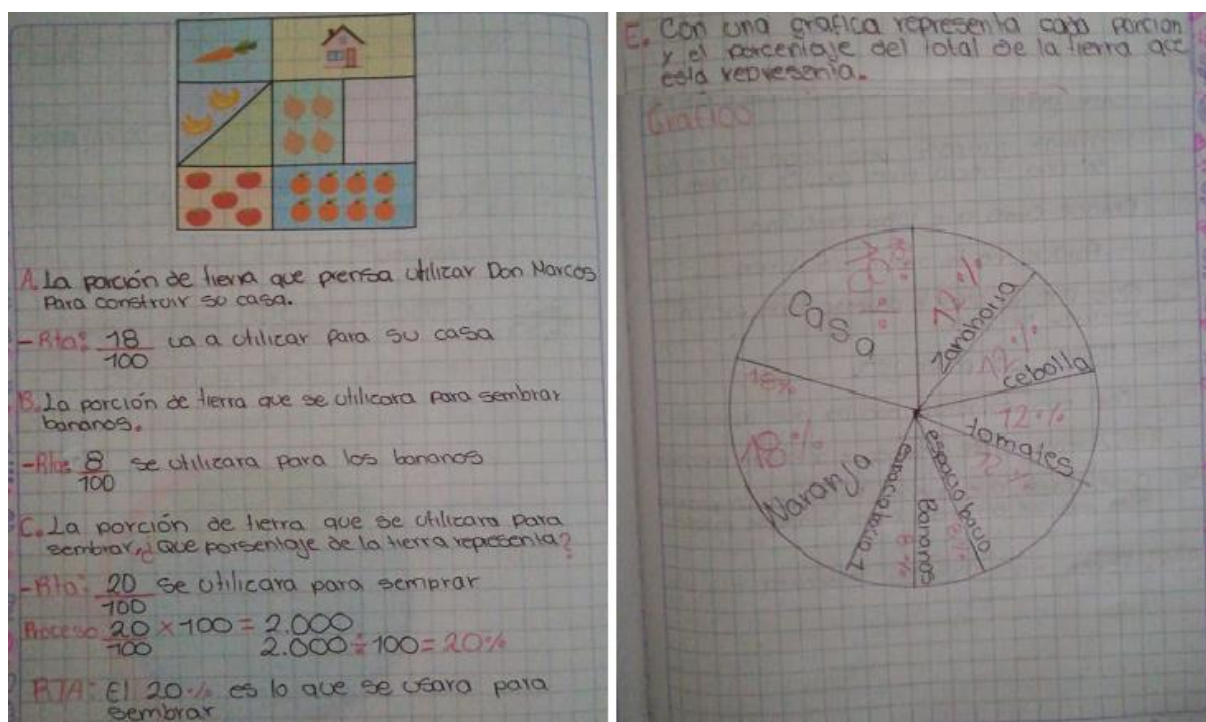 A. La porción de tierra que piensa utilizar Don Marcos
Para construir su casa.
-Rta: 18/100 va a utilicar para su casa
B. La porción de tierra que se utilicara para sembrar
bananos.
-Rta: 8/100 se utilizara para los bananos
C. La porción de tierra que se utilicara para
sembrar, ¿Que porsentaje de la tierra representa?
-Rta: 20/100 se utilicara para semprar
Proceso 20/100 × 100 = 2.000
2.000 ÷ 100 = 20%
RTA: El 20% es lo que se usara para
sembrar
E. Con una grafica representa cada porcion
y el porcentaje del total de la tierra que
esta representa.
Grafico
Casa
12%
Zanahoria
12%
cebolla
12%
tomates
12%
espacio bacio
8%
Bananos
8%
espacio bacio 1
18%
Naranja
18%